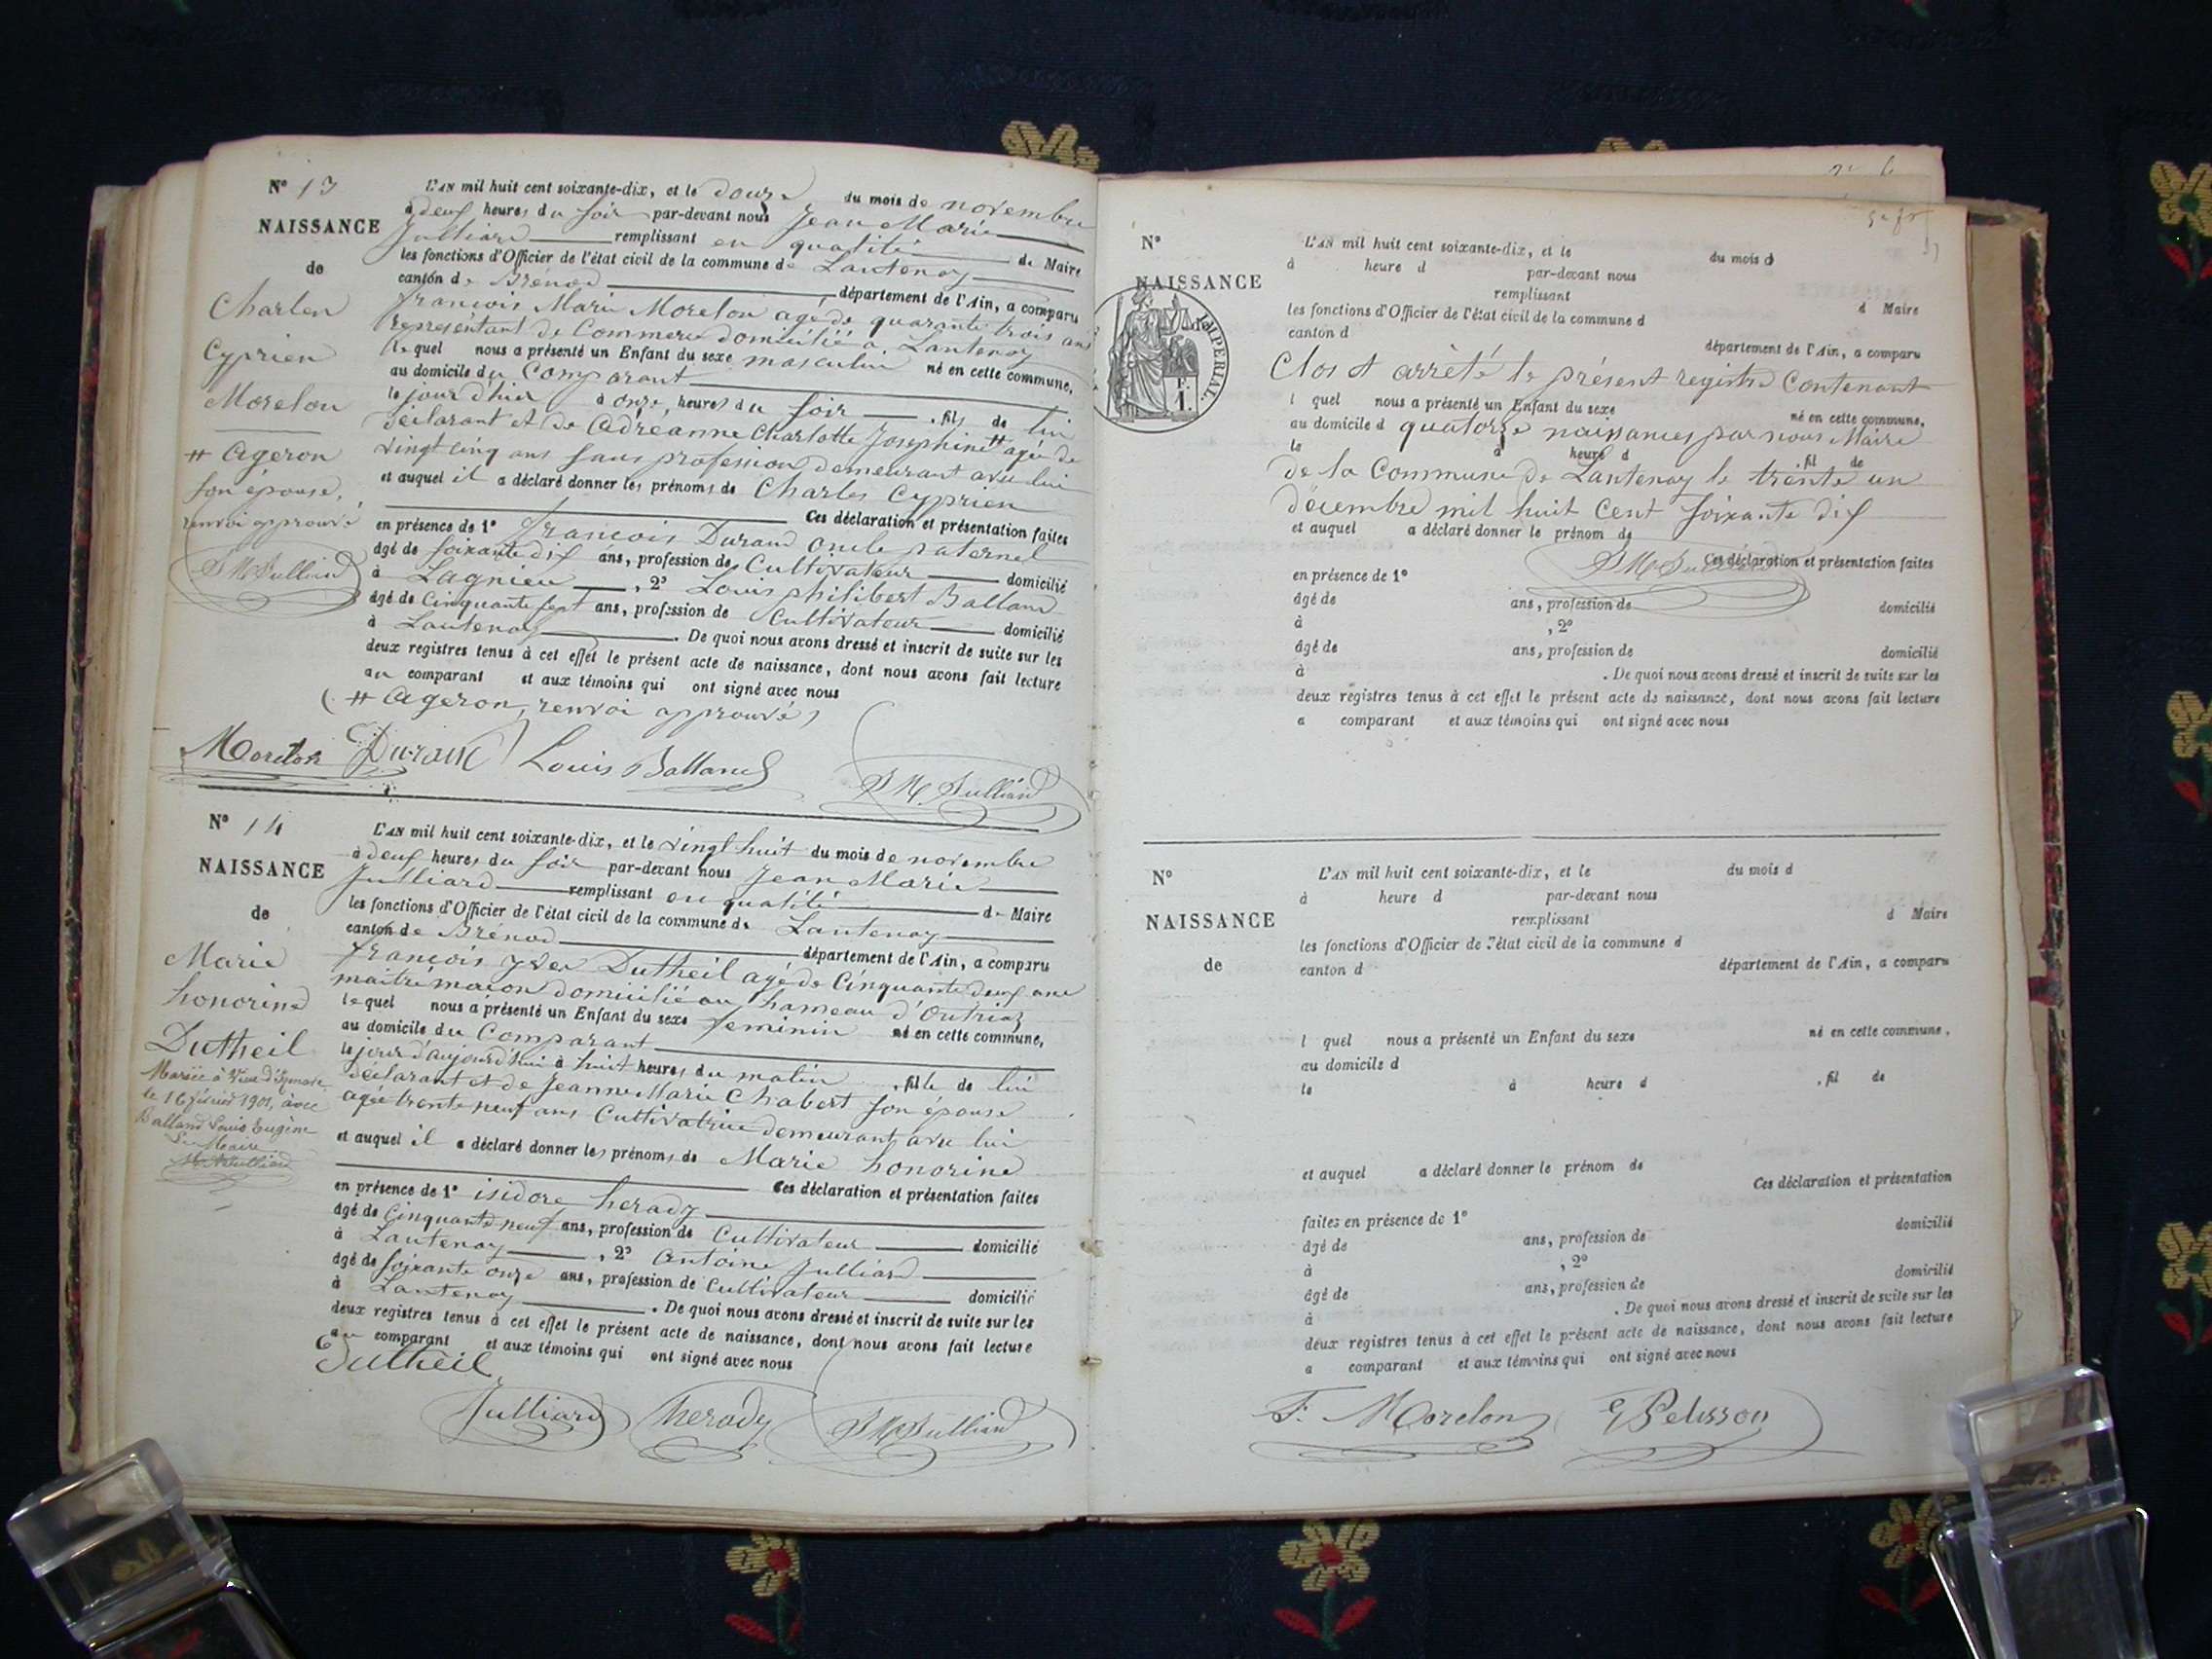 N° 13
NAISSANCE
de
Charles
Cyprien
Morelon
# Ageron
son épouse,
renvoi approuvé
J M Julliard
L'AN mil huit cent soixante-dix, et le douze du mois de novembre
à deux heures du soir par-devant nous Jean Marie
Julliard remplissant en qualité de Maire
les fonctions d'Officier de l'état civil de la commune de Lantenay
canton de Brénod département de l'Ain, a comparu
françois Marie Morelon agé de quarante trois ans
représentant de Commerce domicilié à Lantenay
lequel nous a présenté un Enfant du sexe masculin né en cette commune,
au domicile du Comparant
le jour d'hier à onze heures du soir, fils de lui
déclarant et de Adréanne Charlotte Josephine # agée de
vingt cinq ans sans profession demeurant avec lui
et auquel il a déclaré donner les prénoms de Charles Cyprien
Ces déclaration et présentation faites
en présence de 1° françois Durand oncle paternel
âgé de soixante dix ans, profession de Cultivateur domicilié
à Lagnieu, 2° Louis philibert Balland
âgé de Cinquante sept ans, profession de Cultivateur domicilié
à Lantenay. De quoi nous avons dressé et inscrit de suite sur les
deux registres tenus à cet effet le présent acte de naissance, dont nous avons fait lecture
au comparant et aux témoins qui ont signé avec nous
(# Ageron, renvoi approuvé)
Morelon Durand Louis Balland J M Julliard
N° 14
NAISSANCE
de
Marie
honorine
Dutheil
Mariée à Vieu d'Izenave
le 16 février 1901, avec
Balland Louis Eugène
Le Maire
L'AN mil huit cent soixante-dix, et le vingt huit du mois de novembre
à deux heures du soir par-devant nous Jean Marie
Julliard remplissant en qualité de Maire
les fonctions d'Officier de l'état civil de la commune de Lantenay
canton de Brénod département de l'Ain, a comparu
françois yves Dutheil agé de Cinquante deux ans
maitre maçon domicilié au hameau d'Outriaz
lequel nous a présenté un Enfant du sexe féminin né en cette commune,
au domicile du Comparant
le jour d'aujourd'hui à huit heures du matin, fille de lui
déclarant et de Jeanne Marie Chabert son épouse
agée trente neuf ans Cultivatrice demeurant avec lui
et auquel il a déclaré donner les prénoms de Marie honorine
Ces déclaration et présentation faites
en présence de 1° isidore herady
âgé de Cinquante neuf ans, profession de Cultivateur domicilié
à Lantenay, 2° antoine Julliard
âgé de soixante onze ans, profession de Cultivateur domicilié
à Lantenay. De quoi nous avons dressé et inscrit de suite sur les
deux registres tenus à cet effet le présent acte de naissance, dont nous avons fait lecture
au comparant et aux témoins qui ont signé avec nous
Dutheil
Julliard herady J M Julliard
N°
NAISSANCE
IMPERIAL
1 F.
L'AN mil huit cent soixante-dix, et le du mois d
à heure d par-devant nous
remplissant d Maire
les fonctions d'Officier de l'état civil de la commune d
canton d département de l'Ain, a comparu
Clos et arrêté le présent registre Contenant
l quel nous a présenté un Enfant du sexe né en cette commune,
au domicile d
quatorze naissances par nous Maire
le à heure d , fil de
de la Commune de Lantenay le trente un
décembre mil huit Cent soixante dix
et auquel a déclaré donner le prénom de
J M Julliard
Ces déclaration et présentation faites
en présence de 1°
âgé de ans, profession de domicilié
à , 2°
âgé de ans, profession de domicilié
à . De quoi nous avons dressé et inscrit de suite sur les
deux registres tenus à cet effet le présent acte de naissance, dont nous avons fait lecture
a comparant et aux témoins qui ont signé avec nous
N°
NAISSANCE
de
L'AN mil huit cent soixante-dix, et le du mois d
à heure d par-devant nous
remplissant d Maire
les fonctions d'Officier de l'état civil de la commune d
canton d département de l'Ain, a comparu
l quel nous a présenté un Enfant du sexe né en cette commune,
au domicile d
le à heure d , fil de
et auquel a déclaré donner le prénom de
Ces déclaration et présentation
faites en présence de 1°
âgé de ans, profession de domicilié
à , 2°
âgé de ans, profession de domicilié
à . De quoi nous avons dressé et inscrit de suite sur les
deux registres tenus à cet effet le présent acte de naissance, dont nous avons fait lecture
a comparant et aux témoins qui ont signé avec nous
F. Morelon Pelisson